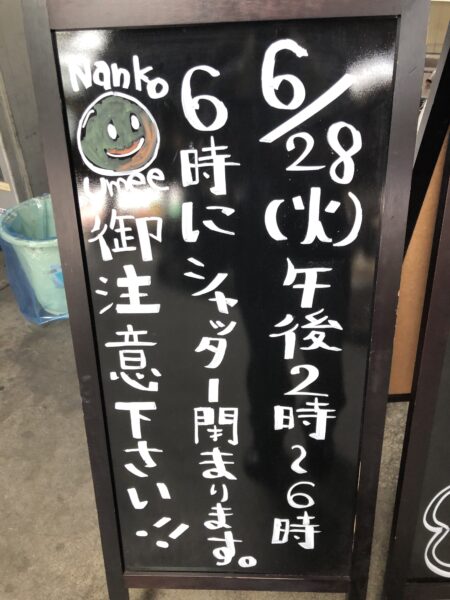 6/28(火)午後2時~6時
6時にシャッター閉まります。
Nanko
umee
御注意下さい!!